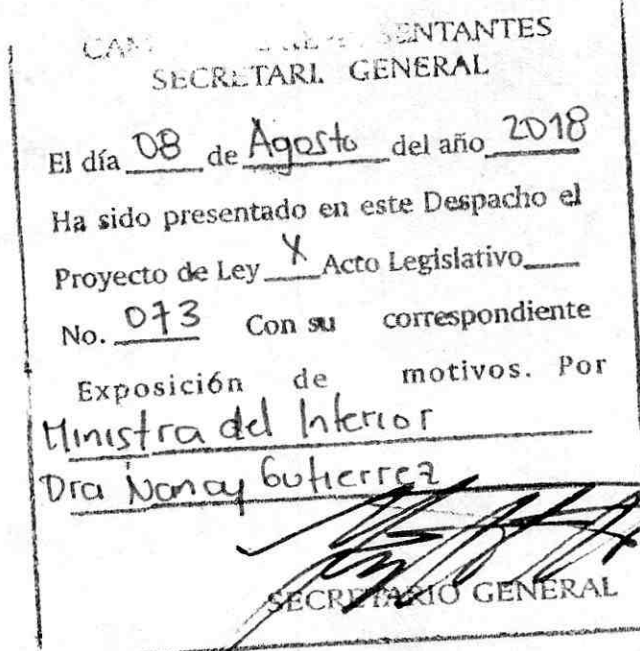 SENTANTES
GENERAL
El día 08 de Agosto del año 2018
Ha sido presentado en este Despacho el
Proyecto de Ley X Acto Legislativo
No. 073 Con su correspondiente
Exposición de motivos. Por
Ministra del Interior
Dra Nancy Gutierrez
SECRETARIO GENERAL